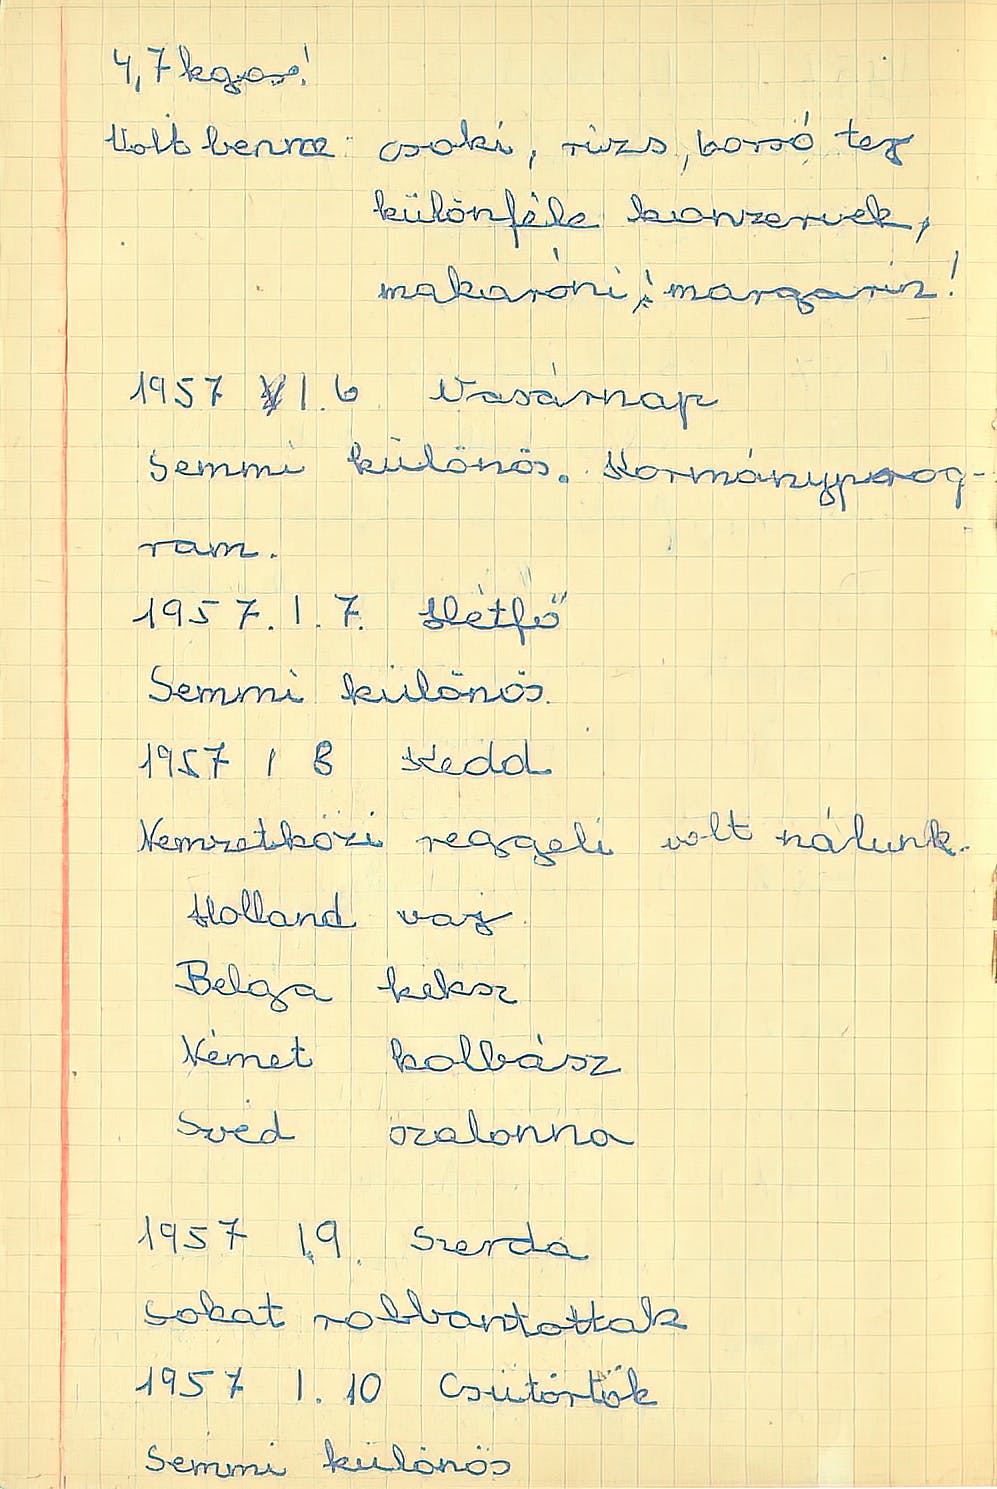 4,7 kgos!
Volt benne: csoki, rizs, borsó tej
különféle konzervek,
makaróni, margarin!
1957 I. 6 Vasárnap
Semmi különös. Kormányprog-
ram.
1957. I. 7. Hétfő
Semmi különös.
1957 I 8 Kedd
Nemzetközi reggeli volt nálunk.
Holland vaj
Belga keksz
Német kolbász
Svéd szalonna
1957 I.9. Szerda
sokat robbantottak
1957 I. 10 Csütörtök
Semmi különös